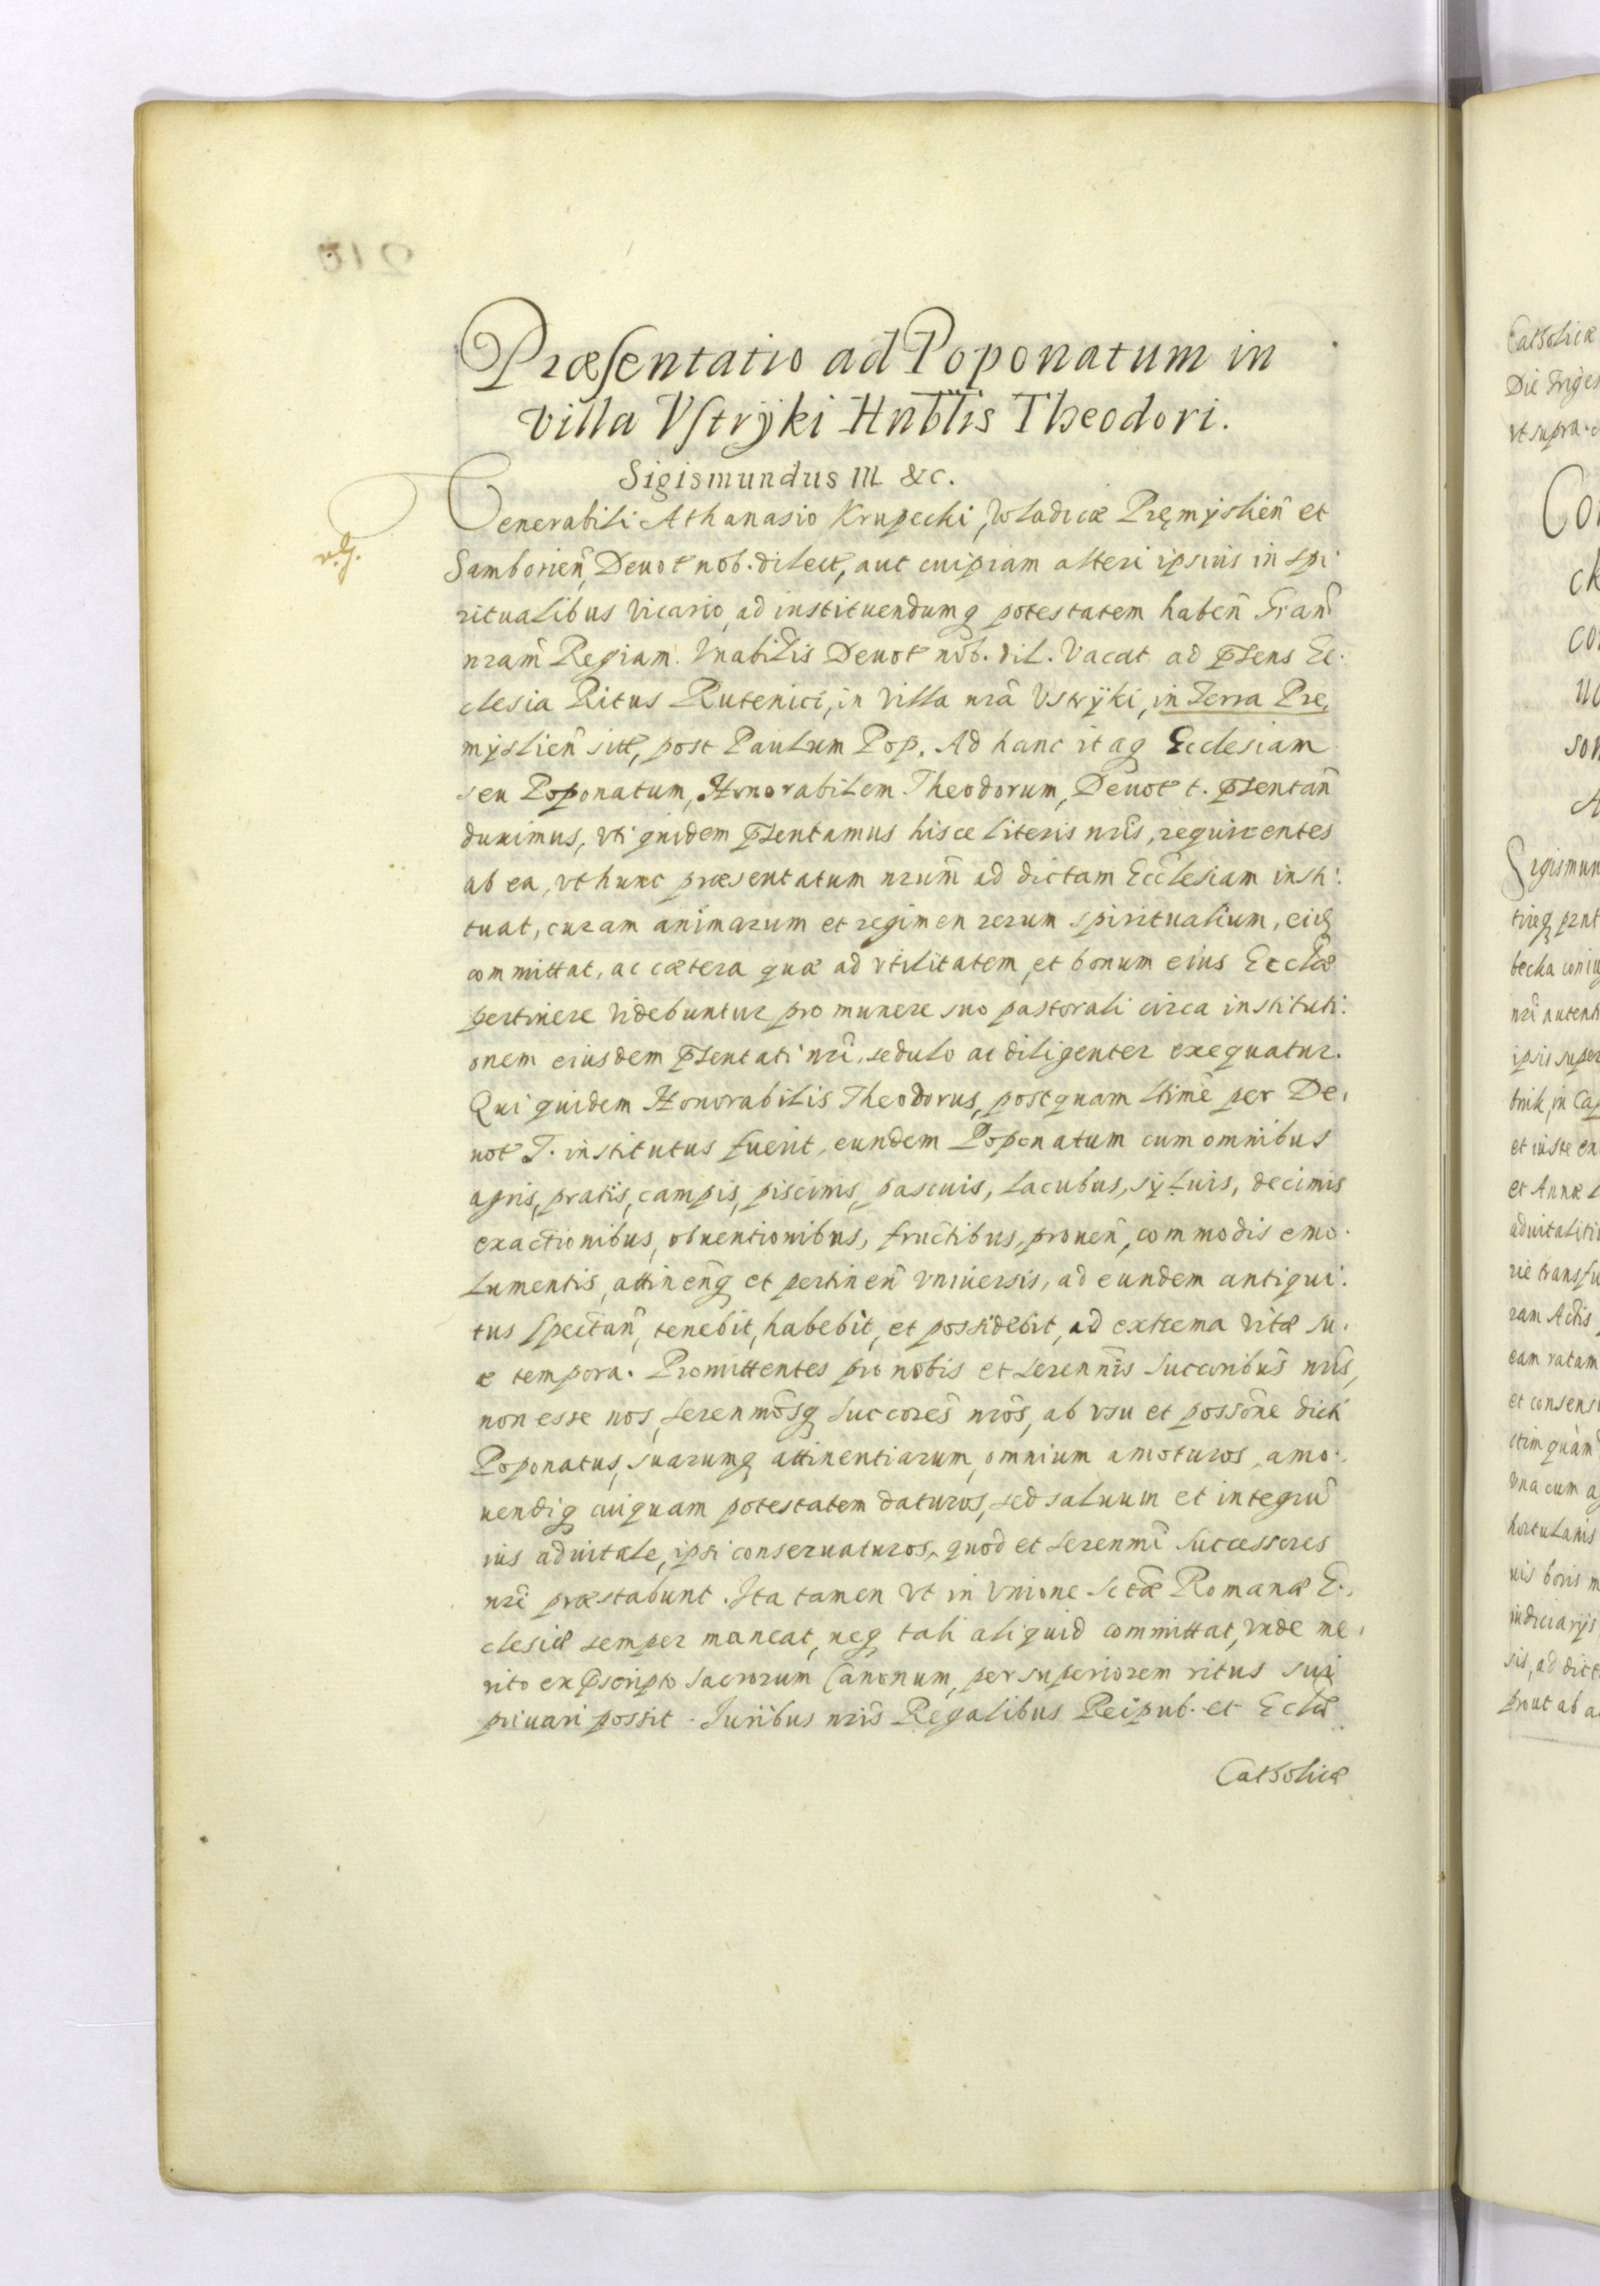 Præsentatio ad Poponatum in
villa Vstrÿki Hnblis Theodori.
Sigismundus III &c.
Venerabili Athanasio Krupecki, Wladicæ Pręmÿslien̄ et
Samborien̄, Deuot nob. dilect, aut cuipiam alteri ipsius in spi
ritualibus vicario, ad instituendumq potestatem haben̄ Gran̄
nram̄ Regiam. Vnabilis Deuot nob. dil. Vacat ad p̄sens Ec.
clesia Ritus Rutenici, in villa nrā Vstrÿki, in Terra Pre,
mÿslien̄ sitt, post Paulum Pop. Ad hanc itaq Ecclesiam
seu Poponatum, Honorabilem Theodorum, Deuot t. p̄sentan̄
duximus, vti quidem p̄sentamus hisce literis nr̄is, requirentes
ab ea, vt hunc præsentatum nrum̄ ad dictam Ecc̄lesiam insti:
tuat, curam animarum et regimen rerum spiritualium, eiq
committat, ac cætera quæ ad vtilitatem, et bonum eius Ecclæ
pertinere videbuntur pro munere suo pastorali circa instituti:
onem eiusdem p̄sentati nr̄i, sedulo ac diligenter exequatur.
Qui quidem Honorabilis Theodorus, postquam ltimē per De,
uot T. institutus fuerit, eundem Poponatum cum omnibus
agris, pratis, campis, piscinis, pascuis, lacubus, sÿluis, decimis
exactionibus, obuentionibus, fructibus, prouen̄, commodis emo.
lumentis, attinen̄q et pertinen̄ vniuersis, ad eundem antiqui:
tus spectan̄, tenebit, habebit, et possidebit, ad extrema vitæ su.
æ tempora. Promittentes pro nobis et seren̄nis succoribus̄ nr̄is,
non esse nos, serenmōsq succores̄ nrōs, ab vsu et possōne dicti
Poponatus, suarumq attinentiarum, omnium amoturos, amo.
uendiq cuiquam potestatem daturos, sed saluum et integrū
ius aduitale, ipsi conseruaturos, quod et serenmī successores
nr̄i præstabunt. Ita tamen vt in vnione Sctæ Romanæ Ec.
clesiæ semper maneat, neq tali aliquid committat, vnde me,
rito ex p̄scripto sacrorum Canonum, per superiorem ritus sui
priuari possit. Iuribus nr̄is Regalibus Reipub. et Eclæ
Catholicæ